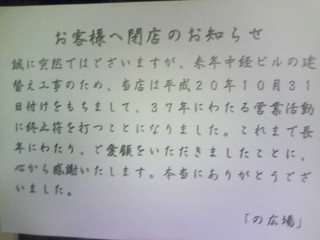 お客様へ閉店のお知らせ
誠に突然ではございますが、来年中経ビルの建
替え工事のため、当店は平成20年10月31
日付けをもちまして、37年にわたる営業活動
に終止符を打つことになりました。これまで長
年にわたり、ご愛顧をいただきましたことに、
心から感謝いたします。本当にありがとうござ
いました。
「の広場」